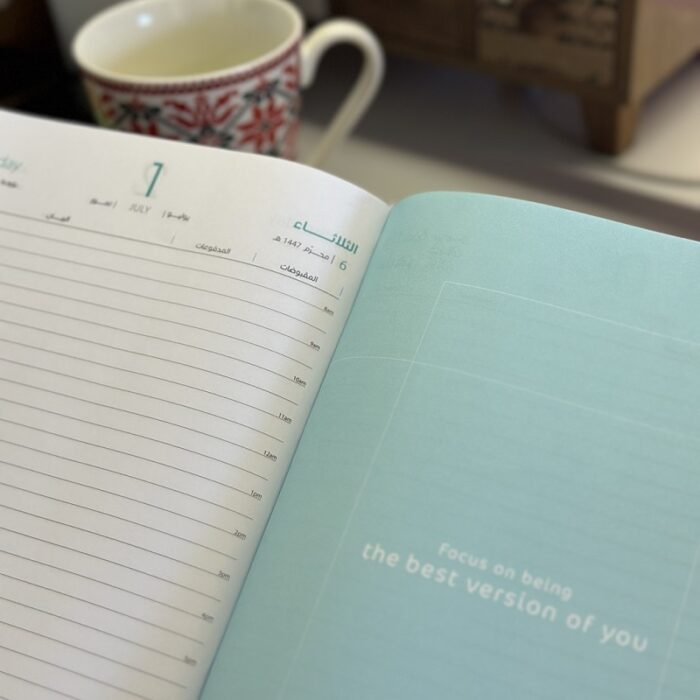 day
1
JULY
يوليو | تموز
الثلاثـــاء
6 | محـرّم 1447 هـ
البيــان
المدفوعات
المقبوضات
8am
9am
10am
11am
12am
1pm
2pm
3pm
4pm
5pm
Focus on being
the best version of you